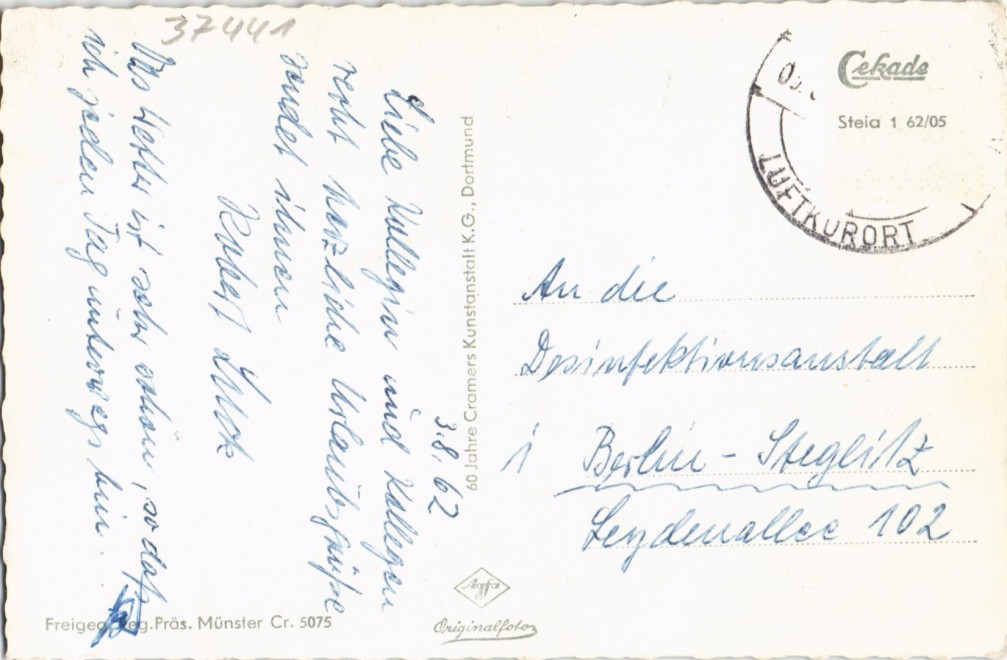 37441
3.8.62
Liebe Kollegin und Kollegen
recht herzliche Urlaubsgrüße
sendet ihnen
Robert
Das Wetter ist sehr schön, sodaß
ich jeden Tag unterwegs bin.
60 Jahre Cramers Kunstanstalt K.G., Dortmund
Cekade
Steia 1 62/05
LUFTKURORT
An die
Desinfektionsanstalt
1 Berlin - Steglitz
Leydenallee 102
Freigeg. Reg.Präs. Münster Cr. 5075
Agfa
Originalfoto